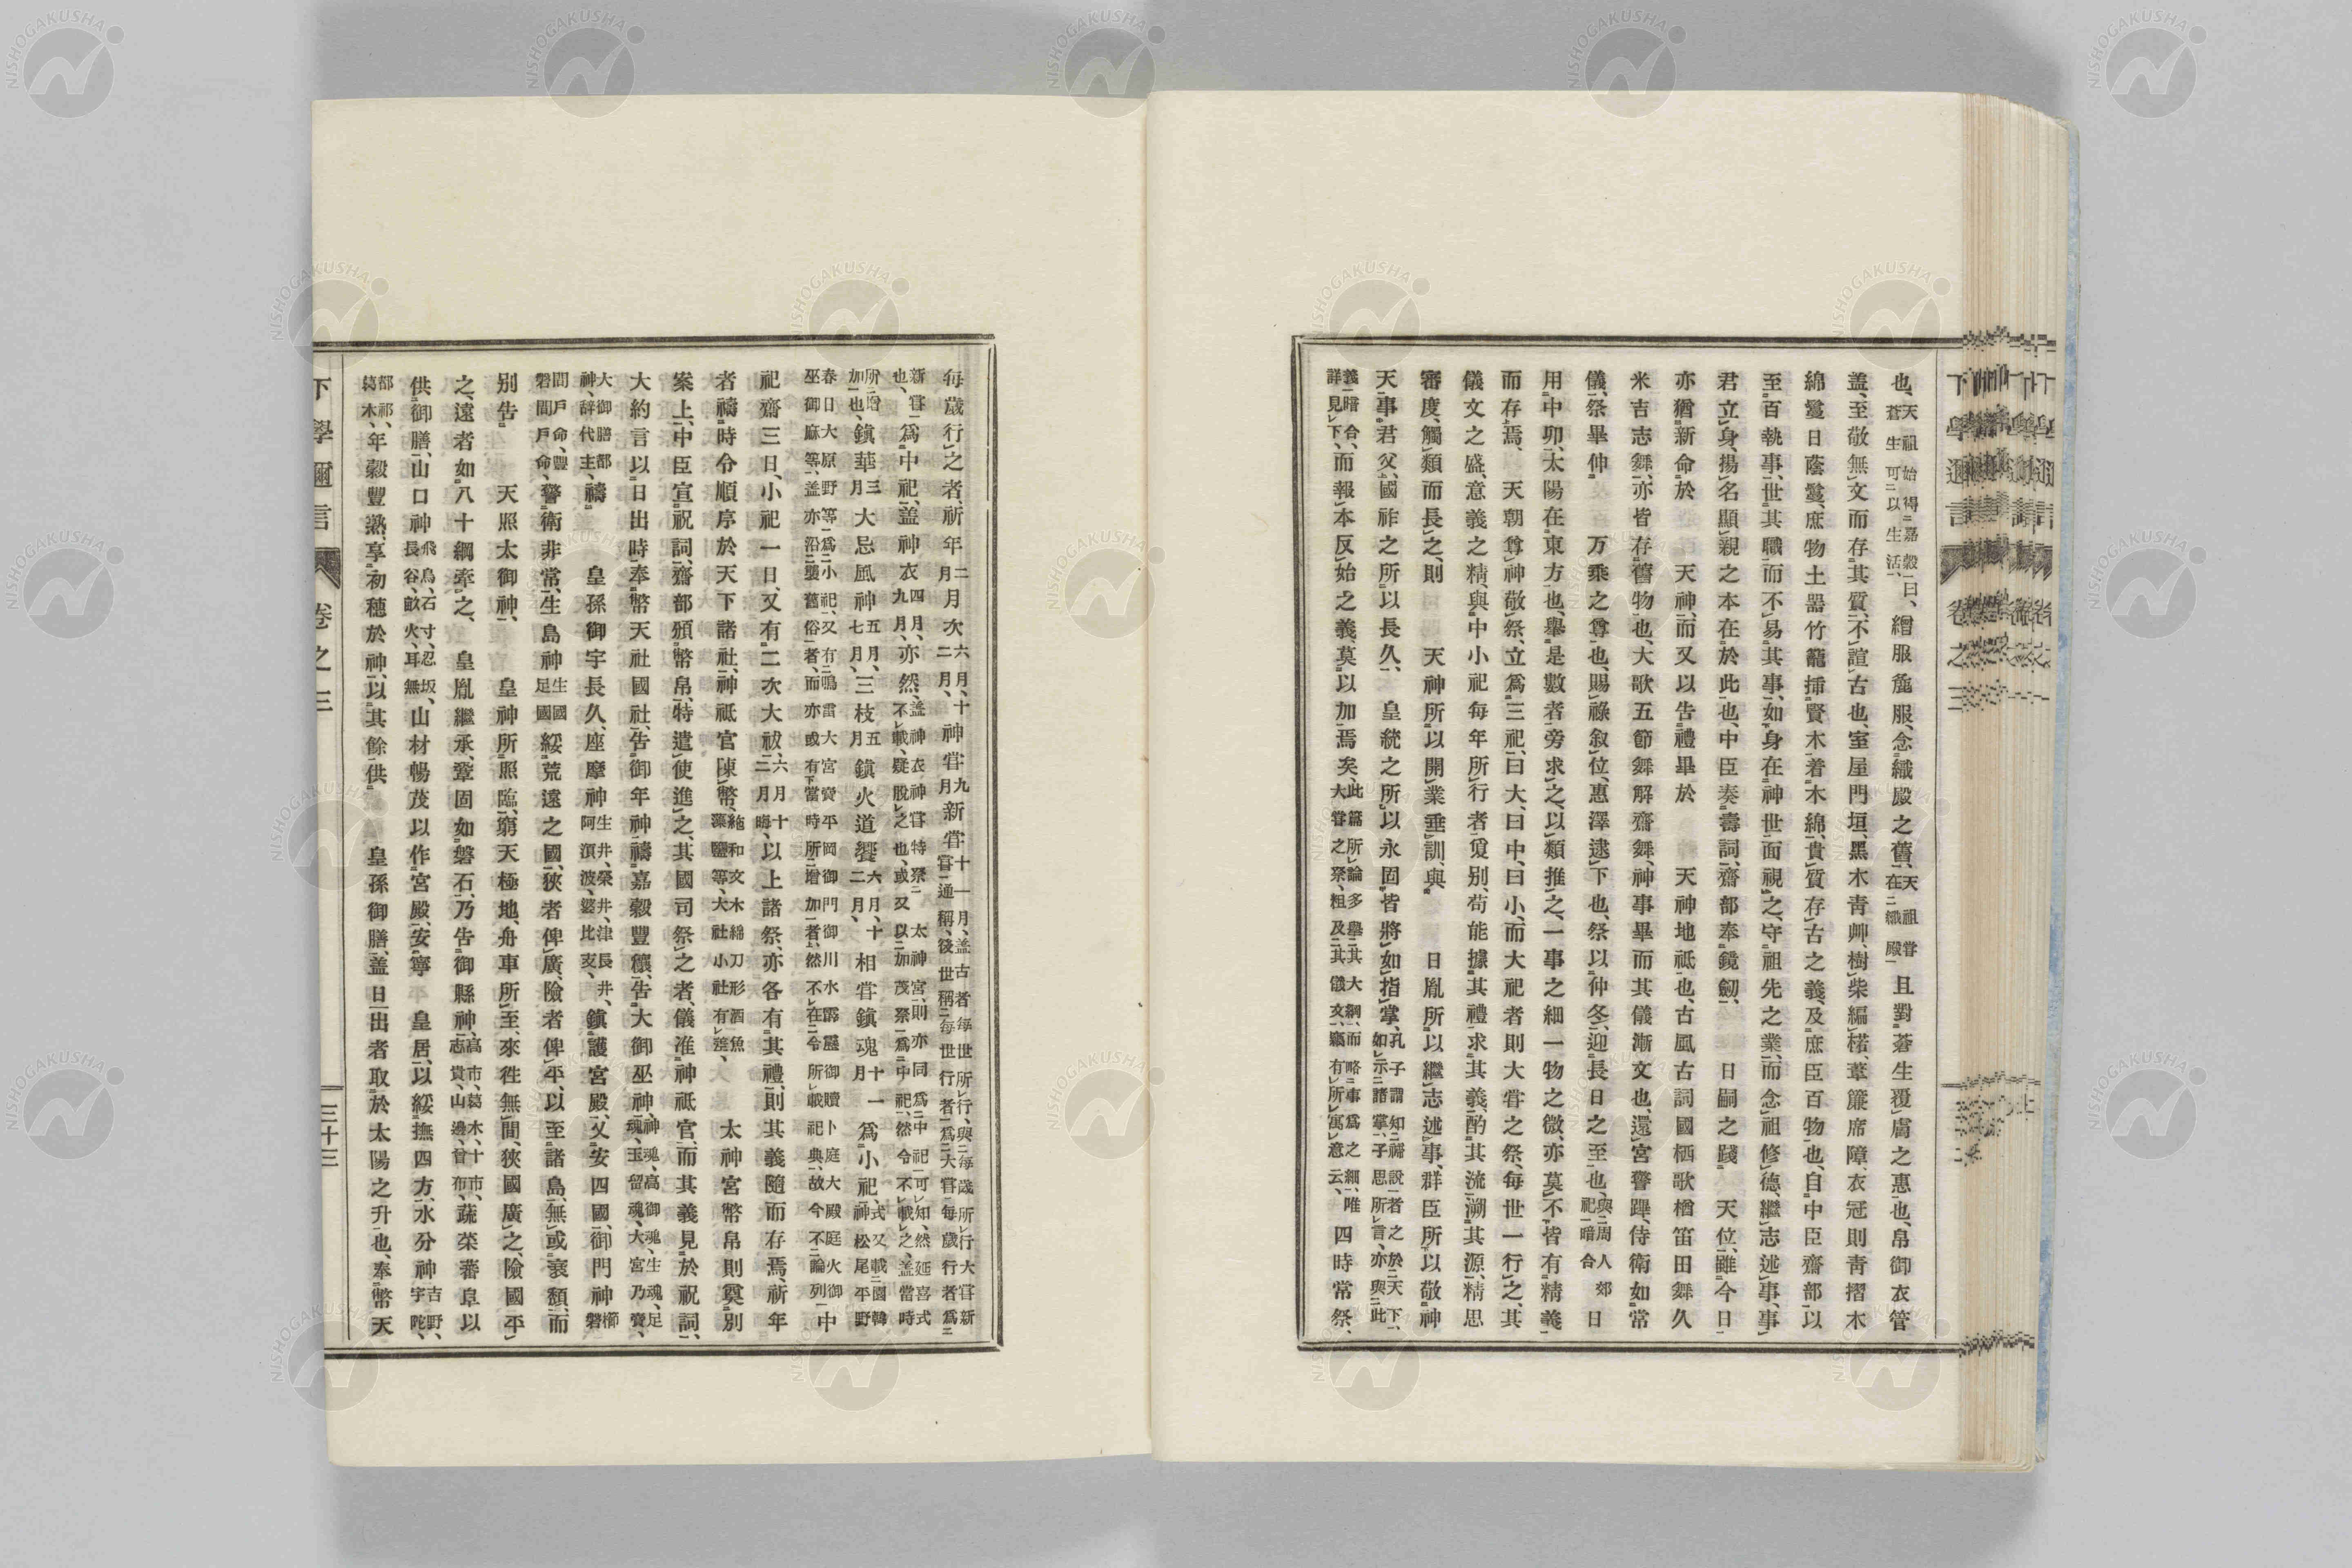 也、天祖始得二嘉穀一曰、蒼生可二以生活一、繒服麁服、念織殿之舊、天祖嘗在二織殿一且對蒼生覆膚之惠也、帛御衣管
盖、至敬無文而存其質、不諠古也、室屋門垣、黑木青艸、樹柴編楉、葦簾席障、衣冠則青摺木
綿鬘日蔭鬘、庶物土噐竹籠挿賢木着木綿、貴質存古之義、及庶臣百物也、自中臣齋部以
至百執事、世其職而不易其事、如身在神世面視之、守祖先之業、而念祖修德、繼志述事、事
君立身、揚名顯親之本在於此也、中臣奏壽詞、齋部奉鏡劒、日嗣之踐天位、雖今日
亦猶新命於天神、而又以告禮畢於天神地祇也、古風古詞國栖歌楢笛田舞久
米吉志舞、亦皆存舊物也、大歌五節舞解齋舞、神事畢而其儀漸文也、還宮警蹕、侍衛如常
儀、祭畢伸万乘之尊也、賜祿叙位、惠澤逮下也、祭以仲冬、迎長日之至也、與二周人郊祀一暗合日
用中卯、太陽在東方也、擧是數者旁求之、以類推之、一事之細一物之微、亦莫不皆有精義
而存焉、天朝尊神敬祭、立爲三祀、曰大、曰中、曰小、而大祀者則大甞之祭、每世一行之、其
儀文之盛、意義之精、與中小祀每年所行者夐別、苟能據其禮求其義、酌其流溯其源、精思
審度、觸類而長之、則天神所以開業垂訓、與日胤所以繼志述事、群臣所以敬神
天事君父、國祚之所以長久、皇統之所以永固、皆將如指掌、孔子謂知二禘說一者之於二天下一、如レ示二諸掌一、子思所レ言、亦與二此
義一暗合、詳見レ下、而報本反始之義、莫以加焉矣、此篇所レ論多擧二其大綱一、而略二事爲之細一、唯大甞之祭、粗及二其儀文一、窃有レ所レ寓レ意云、四時常祭、
每歲行之者、祈年二月月次六月、十二月、神甞九月新甞十一月、盖古者每世所レ行、與二每歲所レ行大甞新甞一通稱、後世稱二每世行者一爲二大甞一每歲行者爲二
新甞一也、爲中祀、盖神衣四月、九月、亦然、盖神衣神甞特祭二太神宮一、則亦同爲二中祀一可レ知、然延喜式不レ載、疑脫之也、或又以二加茂祭一爲二中祀一、然令不レ載レ之、盖當時
所レ增加也、鎮華三月大忌風神五月、七月、三枝五月鎮火道饗六月、十二月、相甞鎮魂十一月爲小祀、式又載二園韓神松尾平野
春日大原野等一爲二小祀一、又有二鳴雷大宮賣平岡御門御川水霹靂御贖卜庭大殿庭火御巫御麻等一、盖亦沿二襲舊俗一者、而亦或有下當時所二增加一者上、然不レ在二令所レ載祀典一、故今不二論列一中
祀齋三日、小祀一日、又有二次大祓、六月十二月晦、以上諸祭、亦各有其禮、則其義隨而存焉、祈年
者禱時令順序於天下諸社、神祇官陳幣、絁和文木綿刀形酒魚藻鹽等、大社小社有レ差、太神宮幣帛則奠別
案上、中臣宣祝詞、齋部頒幣帛、特遣使進之、其國司祭之者、儀准神祇官、而其義見於祝詞、
大約言以日出時奉幣天社國社、告御年神、禱嘉穀豐穰、告大御巫神、神魂、高御魂、生魂、足魂、玉留魂、大宮乃賣、
大御膳都神、辞代主、禱皇孫御宇長久、座摩神生井、榮井、津長井、阿須波、婆比支、鎮護宮殿、又安四國、御門神櫛磐
間戶命、豐磐間戶命、警衛非常、生島神生國足國綏荒遠之國、狹者俾廣、險者俾平、以至諸島、無或衰頽、而
別告天照太御神、皇神所照臨、窮天極地、舟車所至、來徃無間、狹國廣之、險國平
之、遠者如八十綱牽之、皇胤繼承、鞏固如磐石、乃告御縣神、高市、葛木、十市、志貴、山邊、曾布、蔬菜蕃阜以
供御膳、山口神飛鳥、石寸、忍坂、長谷、畝火、耳無、山材暢茂以作宮殿、安寧皇居、以綏撫四方、水分神吉野、宇陀、
都祁、葛木、年穀豐熟、享初穗於神、以其餘供皇孫御膳、盖日出者取於太陽之升也、奉幣天
下學邇言 卷之三 三十三